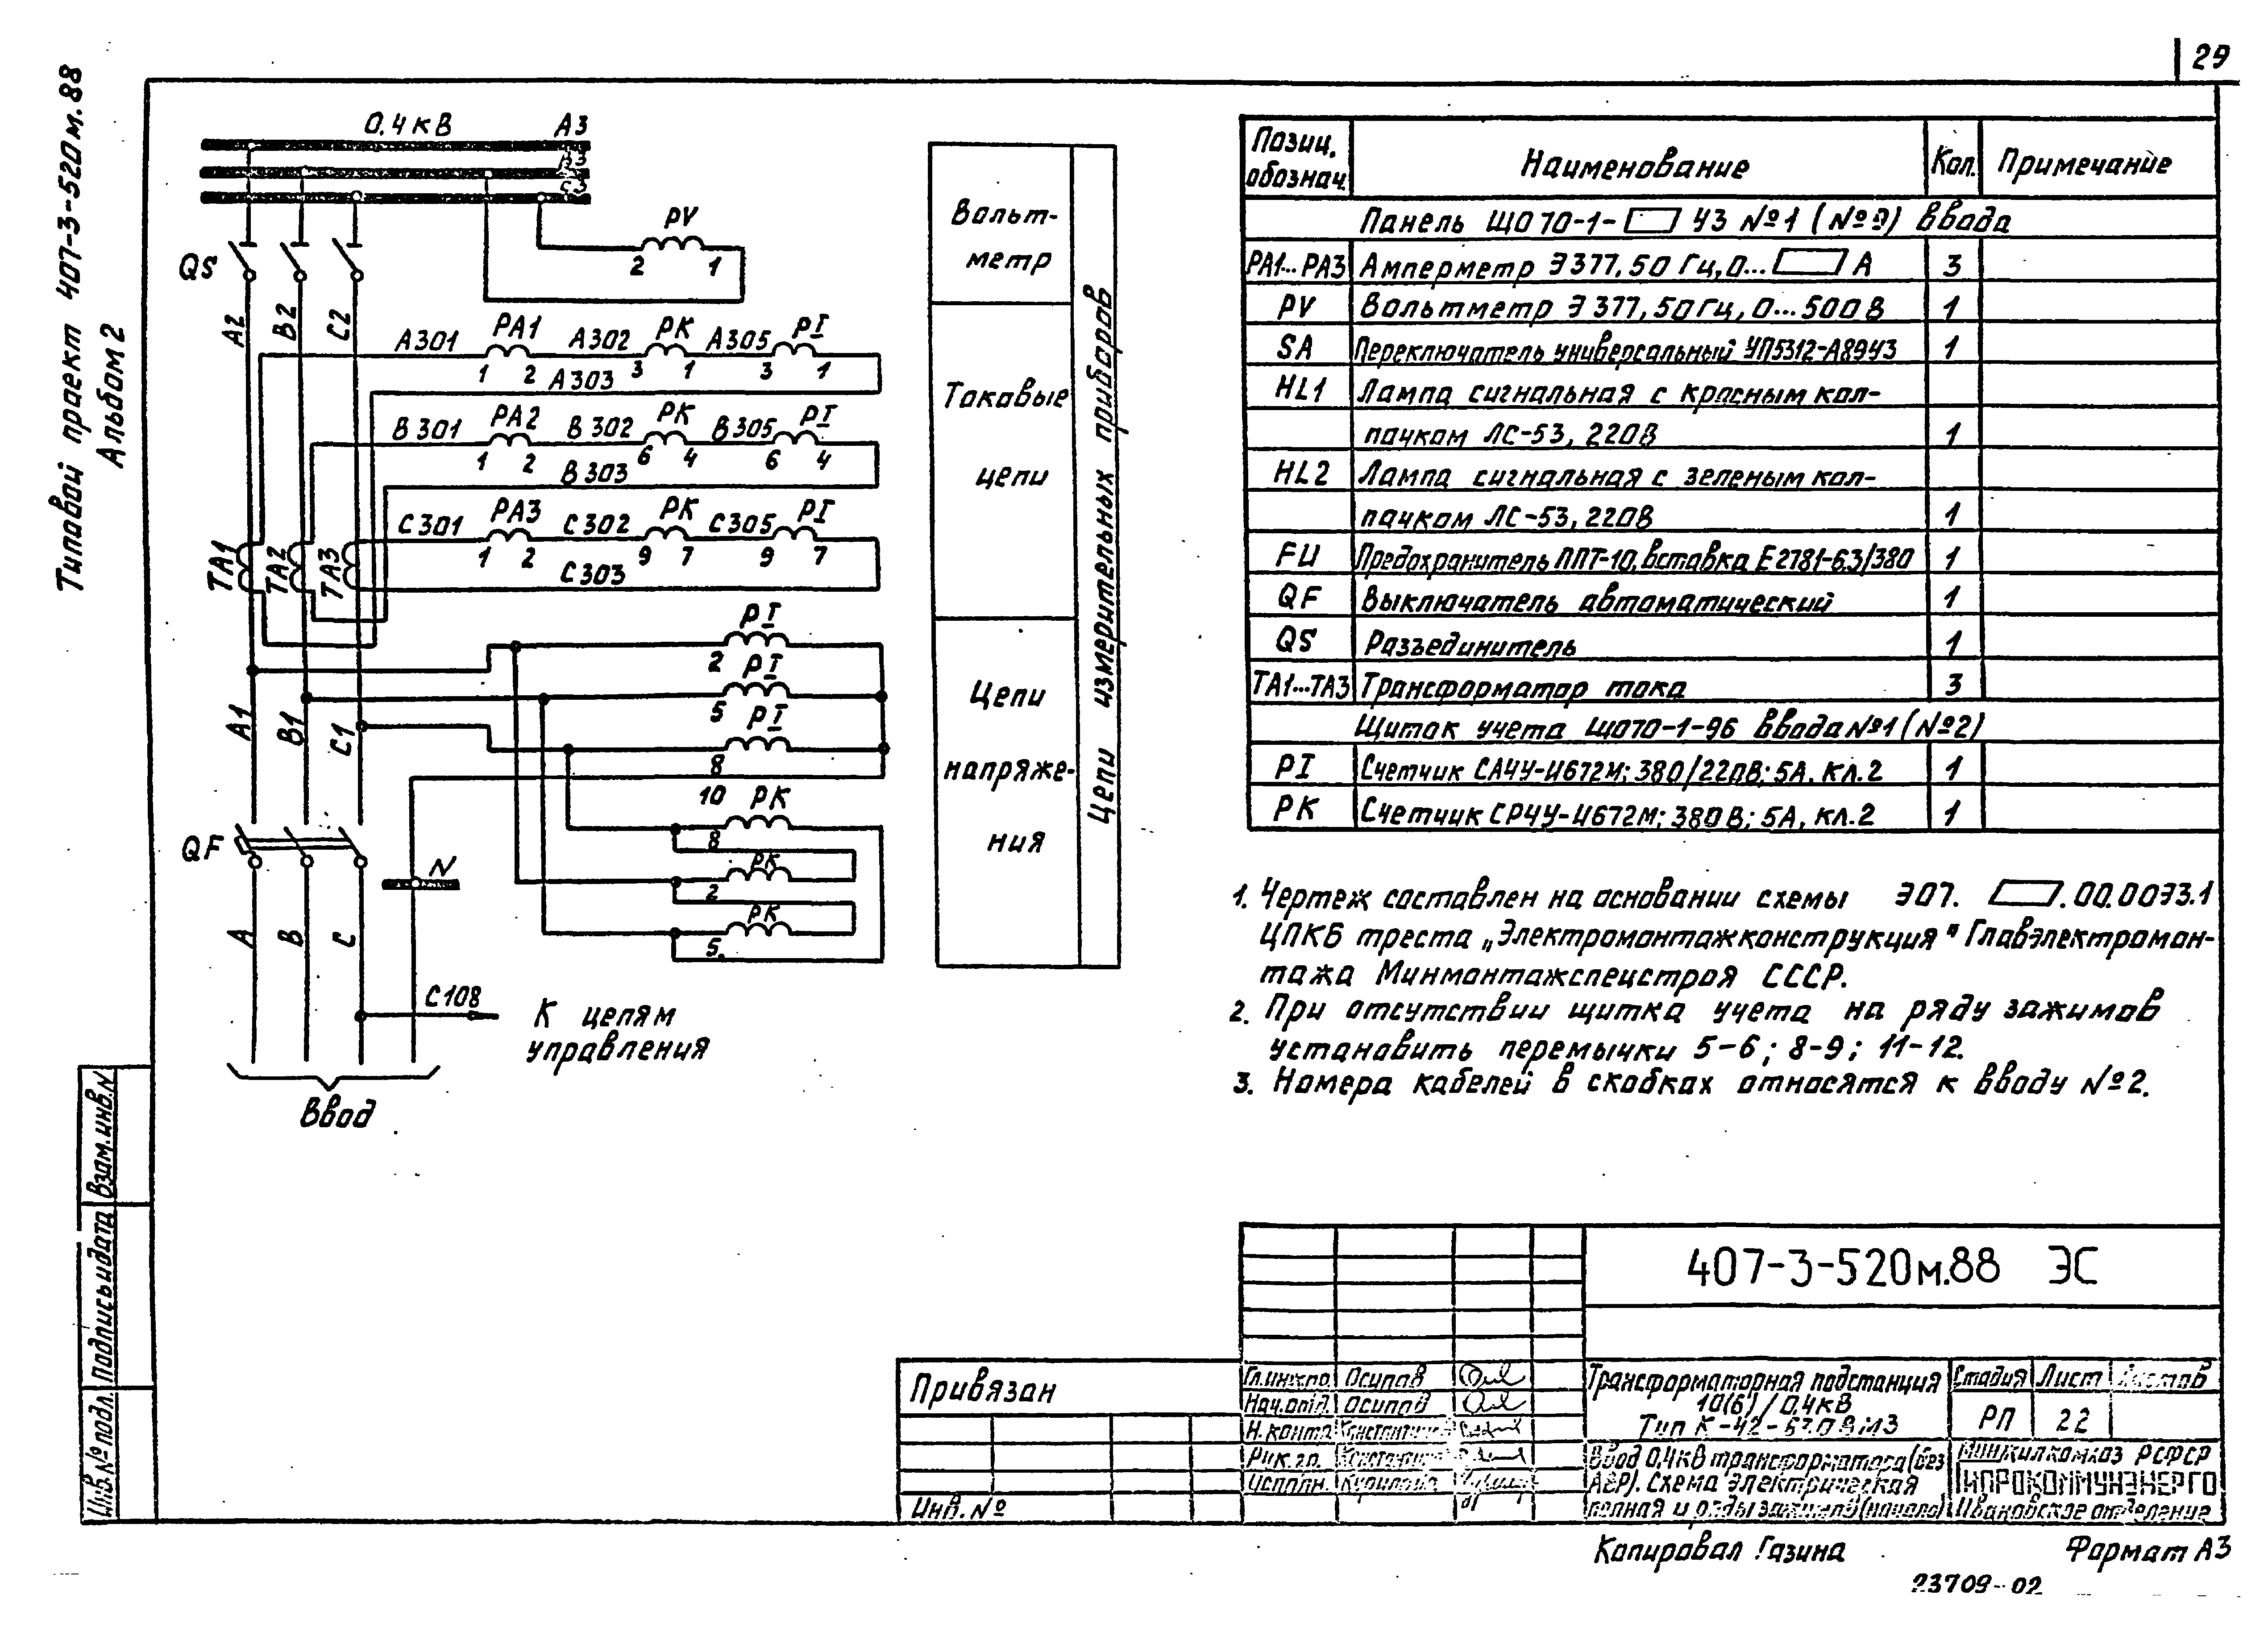 29
Типовой проект 407-3-520м.88
Альбом 2
0,4кВ
А3
В3
С3
QS
PV
2 1
А2 В2 С2
А301 РА1 А302 РК А305 PI
1 2 3 1 3 1
А303
В301 РА2 В302 РК В305 PI
1 2 6 4 6 4
В303
С301 РА3 С302 РК С305 PI
1 2 9 7 9 7
С303
ТА1 ТА2 ТА3
PI
2
PI
5
PI
8
10 РК
8
РК
2
РК
5
А1 В1 С1
QF
N
А В С
С108
К цепям
управления
Ввод
Вольт-
метр
Токовые
цепи
Цепи
напряже-
ния
Цепи измерительных приборов
Позиц. обознач. Наименование Кол. Примечание
Панель ЩО 70-1- У3 №1 (№9) Ввода
РА1...РА3 Амперметр Э377, 50 Гц, 0... А 3
PV Вольтметр Э 377, 50Гц, 0...500В 1
SA Переключатель универсальный УП5312-А89У3 1
HL1 Лампа сигнальная с красным кол-
пачком ЛС-53, 220В 1
HL2 Лампа сигнальная с зеленым кол-
пачком ЛС-53, 220В 1
FU Предохранитель ППТ-10, вставка Е2781-6,3/380 1
QF Выключатель автоматический 1
QS Разъединитель 1
ТА1...ТА3 Трансформатор тока 3
Щиток учета ЩО70-1-96 Ввода №1 (№2)
PI Счетчик СА4У-И672М; 380/220В; 5А, кл.2 1
РК Счетчик СР4У-И672М; 380В; 5А, кл.2 1
1. Чертеж составлен на основании схемы Э07. .00.00Э3.1
ЦПКБ треста „Электромонтажконструкция" Главэлектромон-
тажа Минмонтажспецстроя СССР.
2. При отсутствии щитка учета на ряду зажимов
установить перемычки 5-6; 8-9; 11-12.
3. Номера кабелей в скобках относятся к вводу №2.
Взам.инв.N
Подпись и дата
Инв.№ подл.
407-3-520м.88 ЭС
Привязан
Инв. №
Гл.инж.пр. Осипов
Нач.отд. Осипов
Н. контр.
Рук. гр.
Исполн.
Трансформаторная подстанция
10(6)/0,4кВ
Тип К-42-
Стадия Лист Листов
РП 22
Ввод 0,4кВ трансформатора (без
АВР). Схема электрическая
полная и ряды зажимов (начало)
Минжилкомхоз РСФСР
ГИПРОКОММУНЭНЕРГО
Ивановское отделение
Копировал Газина
Формат А3
23709-02